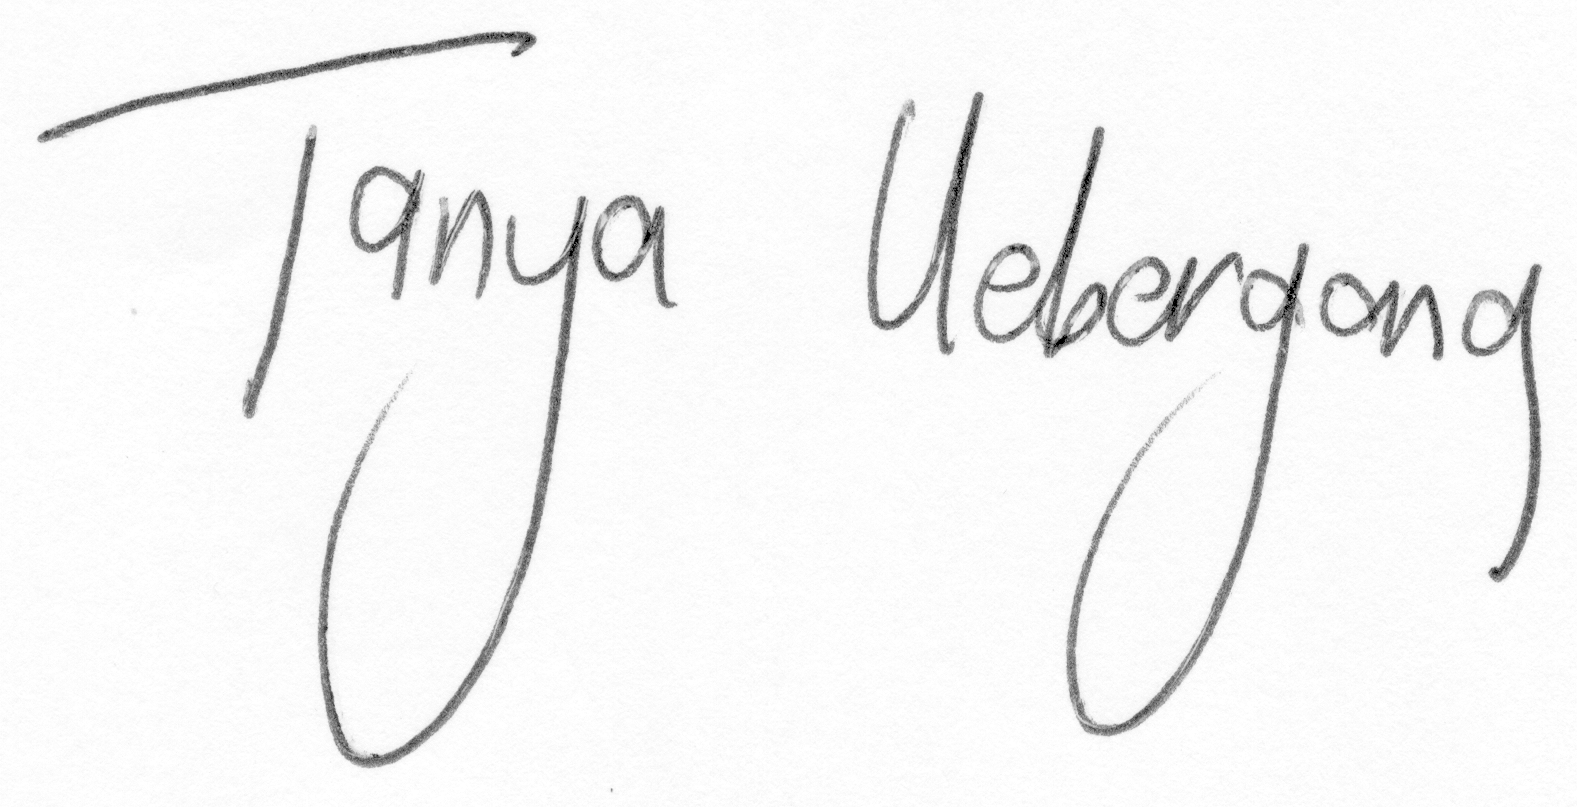 Tanya Uebergang